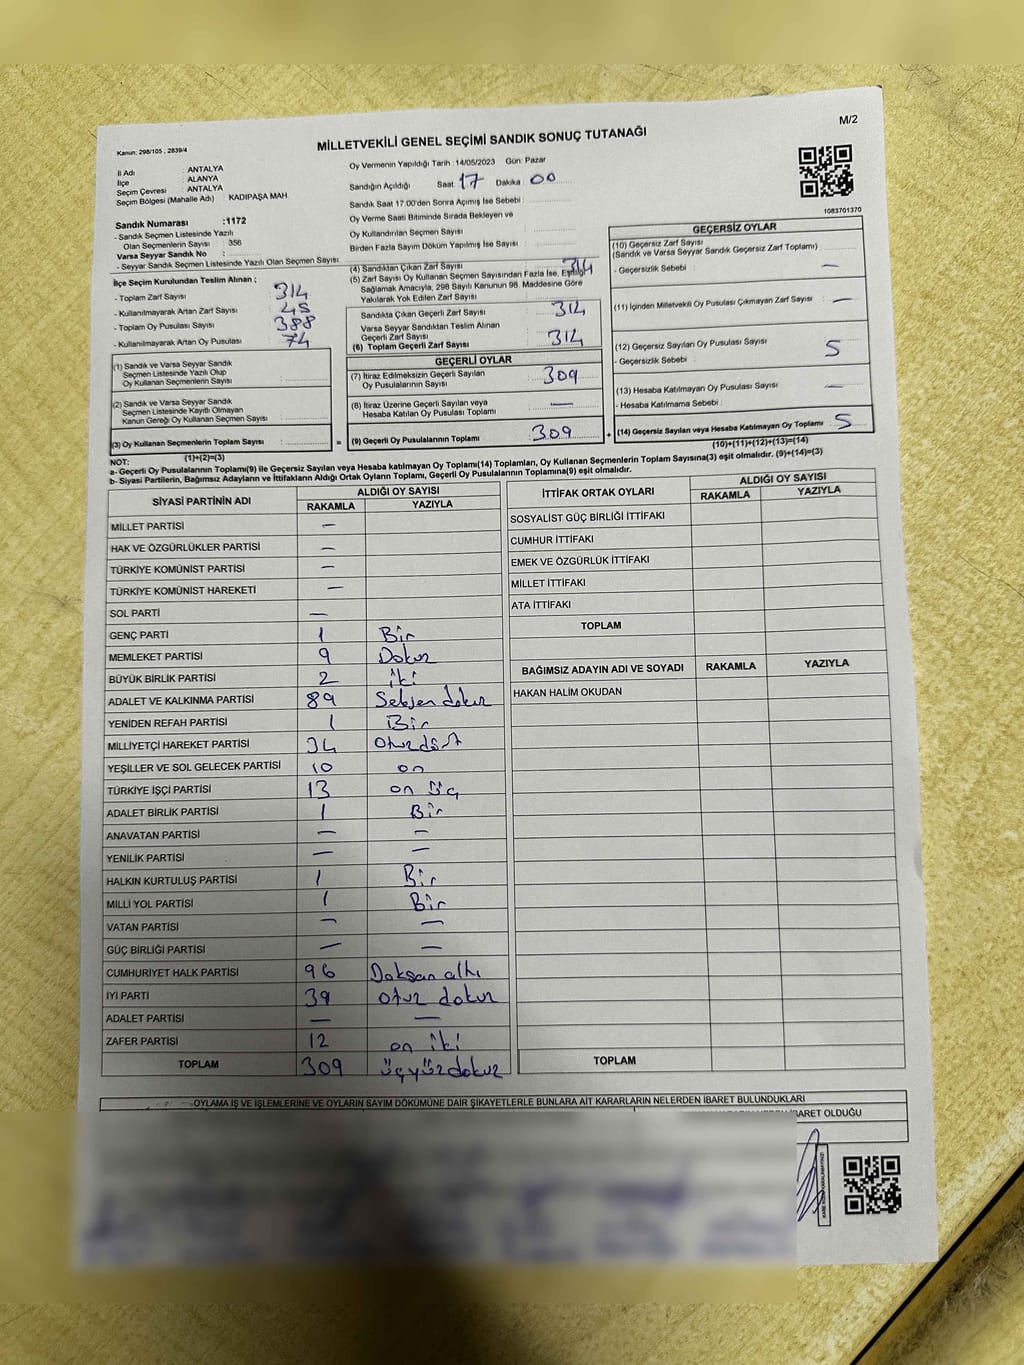 M/2
MİLLETVEKİLİ GENEL SEÇİMİ SANDIK SONUÇ TUTANAĞI
Kanun: 298/105 , 2839/4
İl Adı : ANTALYA
İlçe : ALANYA
Seçim Çevresi : ANTALYA
Seçim Bölgesi (Mahalle Adı) : KADIPAŞA MAH
Sandık Numarası :1172
- Sandık Seçmen Listesinde Yazılı
Olan Seçmenlerin Sayısı : 356
Varsa Seyyar Sandık No :
- Seyyar Sandık Seçmen Listesinde Yazılı Olan Seçmen Sayısı
Oy Vermenin Yapıldığı Tarih : 14/05/2023 Gün: Pazar
Sandığın Açıldığı Saat 17 Dakika 00
Sandık Saat 17.00'den Sonra Açımış İse Sebebi :
Oy Verme Saati Bitiminde Sırada Bekleyen ve
Oy Kullandırılan Seçmen Sayısı :
Birden Fazla Sayım Döküm Yapılmış İse Sayısı :
1083701370
İlçe Seçim Kurulundan Teslim Alınan ;
- Toplam Zarf Sayısı 314
- Kullanılmayarak Artan Zarf Sayısı : 45
- Toplam Oy Pusulası Sayısı 388
- Kullanılmayarak Artan Oy Pusulası : 74
(1) Sandık ve Varsa Seyyar Sandık
Seçmen Listesinde Yazılı Olup
Oy Kullanan Seçmenlerin Sayısı :
(2) Sandık ve Varsa Seyyar Sandık
Seçmen Listesinde Kayıtlı Olmayan
Kanun Gereği Oy Kullanan Seçmen Sayısı :
(3) Oy Kullanan Seçmenlerin Toplam Sayısı :
(1)+(2)=(3)
(4) Sandıktan Çıkan Zarf Sayısı 314
(5) Zarf Sayısı Oy Kullanan Seçmen Sayısından Fazla İse, Eşitliği
Sağlamak Amacıyla, 298 Sayılı Kanunun 98. Maddesine Göre
Yakılarak Yok Edilen Zarf Sayısı :
Sandıkta Çıkan Geçerli Zarf Sayısı : 314
Varsa Seyyar Sandıktan Teslim Alınan
Geçerli Zarf Sayısı :
(6) Toplam Geçerli Zarf Sayısı : 314
GEÇERLİ OYLAR
(7) İtiraz Edilmeksizin Geçerli Sayılan
Oy Pusulalarının Sayısı : 309
(8) İtiraz Üzerine Geçerli Sayılan veya
Hesaba Katılan Oy Pusulası Toplamı : —
= (9) Geçerli Oy Pusulalarının Toplamı : 309 +
GEÇERSİZ OYLAR
(10) Geçersiz Zarf Sayısı
(Sandık ve Varsa Seyyar Sandık Geçersiz Zarf Toplamı) :
- Geçersizlik Sebebi : —
(11) İçinden Milletvekili Oy Pusulası Çıkmayan Zarf Sayısı : —
(12) Geçersiz Sayılan Oy Pusulası Sayısı : 5
- Geçersizlik Sebebi :
(13) Hesaba Katılmayan Oy Pusulası Sayısı : —
- Hesaba Katılmama Sebebi :
(14) Geçersiz Sayılan veya Hesaba Katılmayan Oy Toplamı : 5
(10)+(11)+(12)+(13)=(14)
NOT:
a- Geçerli Oy Pusulalarının Toplamı(9) ile Geçersiz Sayılan veya Hesaba katılmayan Oy Toplamı(14) Toplamları, Oy Kullanan Seçmenlerin Toplam Sayısına(3) eşit olmalıdır. (9)+(14)=(3)
b- Siyasi Partilerin, Bağımsız Adayların ve İttifakların Aldığı Ortak Oyların Toplamı, Geçerli Oy Pusulalarının Toplamına(9) eşit olmalıdır.
SİYASİ PARTİNİN ADI ALDIĞI OY SAYISI
RAKAMLA YAZIYLA
MİLLET PARTİSİ —
HAK VE ÖZGÜRLÜKLER PARTİSİ —
TÜRKİYE KOMÜNİST PARTİSİ —
TÜRKİYE KOMÜNİST HAREKETİ —
SOL PARTİ —
GENÇ PARTİ 1 Bir
MEMLEKET PARTİSİ 9 Dokuz
BÜYÜK BİRLİK PARTİSİ 2 iki
ADALET VE KALKINMA PARTİSİ 89 Seksen dokuz
YENİDEN REFAH PARTİSİ 1 Bir
MİLLİYETÇİ HAREKET PARTİSİ 34 Otuz dört
YEŞİLLER VE SOL GELECEK PARTİSİ 10 on
TÜRKİYE İŞÇİ PARTİSİ 13 on üç
ADALET BİRLİK PARTİSİ 1 Bir
ANAVATAN PARTİSİ — —
YENİLİK PARTİSİ — —
HALKIN KURTULUŞ PARTİSİ 1 Bir
MİLLİ YOL PARTİSİ 1 Bir
VATAN PARTİSİ — —
GÜÇ BİRLİĞİ PARTİSİ — —
CUMHURİYET HALK PARTİSİ 96 Doksan altı
İYİ PARTİ 39 otuz dokuz
ADALET PARTİSİ — —
ZAFER PARTİSİ 12 on iki
TOPLAM 309 üçyüzdokuz
İTTİFAK ORTAK OYLARI ALDIĞI OY SAYISI
RAKAMLA YAZIYLA
SOSYALİST GÜÇ BİRLİĞİ İTTİFAKI
CUMHUR İTTİFAKI
EMEK VE ÖZGÜRLÜK İTTİFAKI
MİLLET İTTİFAKI
ATA İTTİFAKI
TOPLAM
BAĞIMSIZ ADAYIN ADI VE SOYADI RAKAMLA YAZIYLA
HAKAN HALİM OKUDAN
TOPLAM
OYLAMA İŞ VE İŞLEMLERİNE VE OYLARIN SAYIM DÖKÜMÜNE DAİR ŞİKAYETLERLE BUNLARA AİT KARARLARIN NELERDEN İBARET BULUNDUKLARI
İBARET OLDUĞU